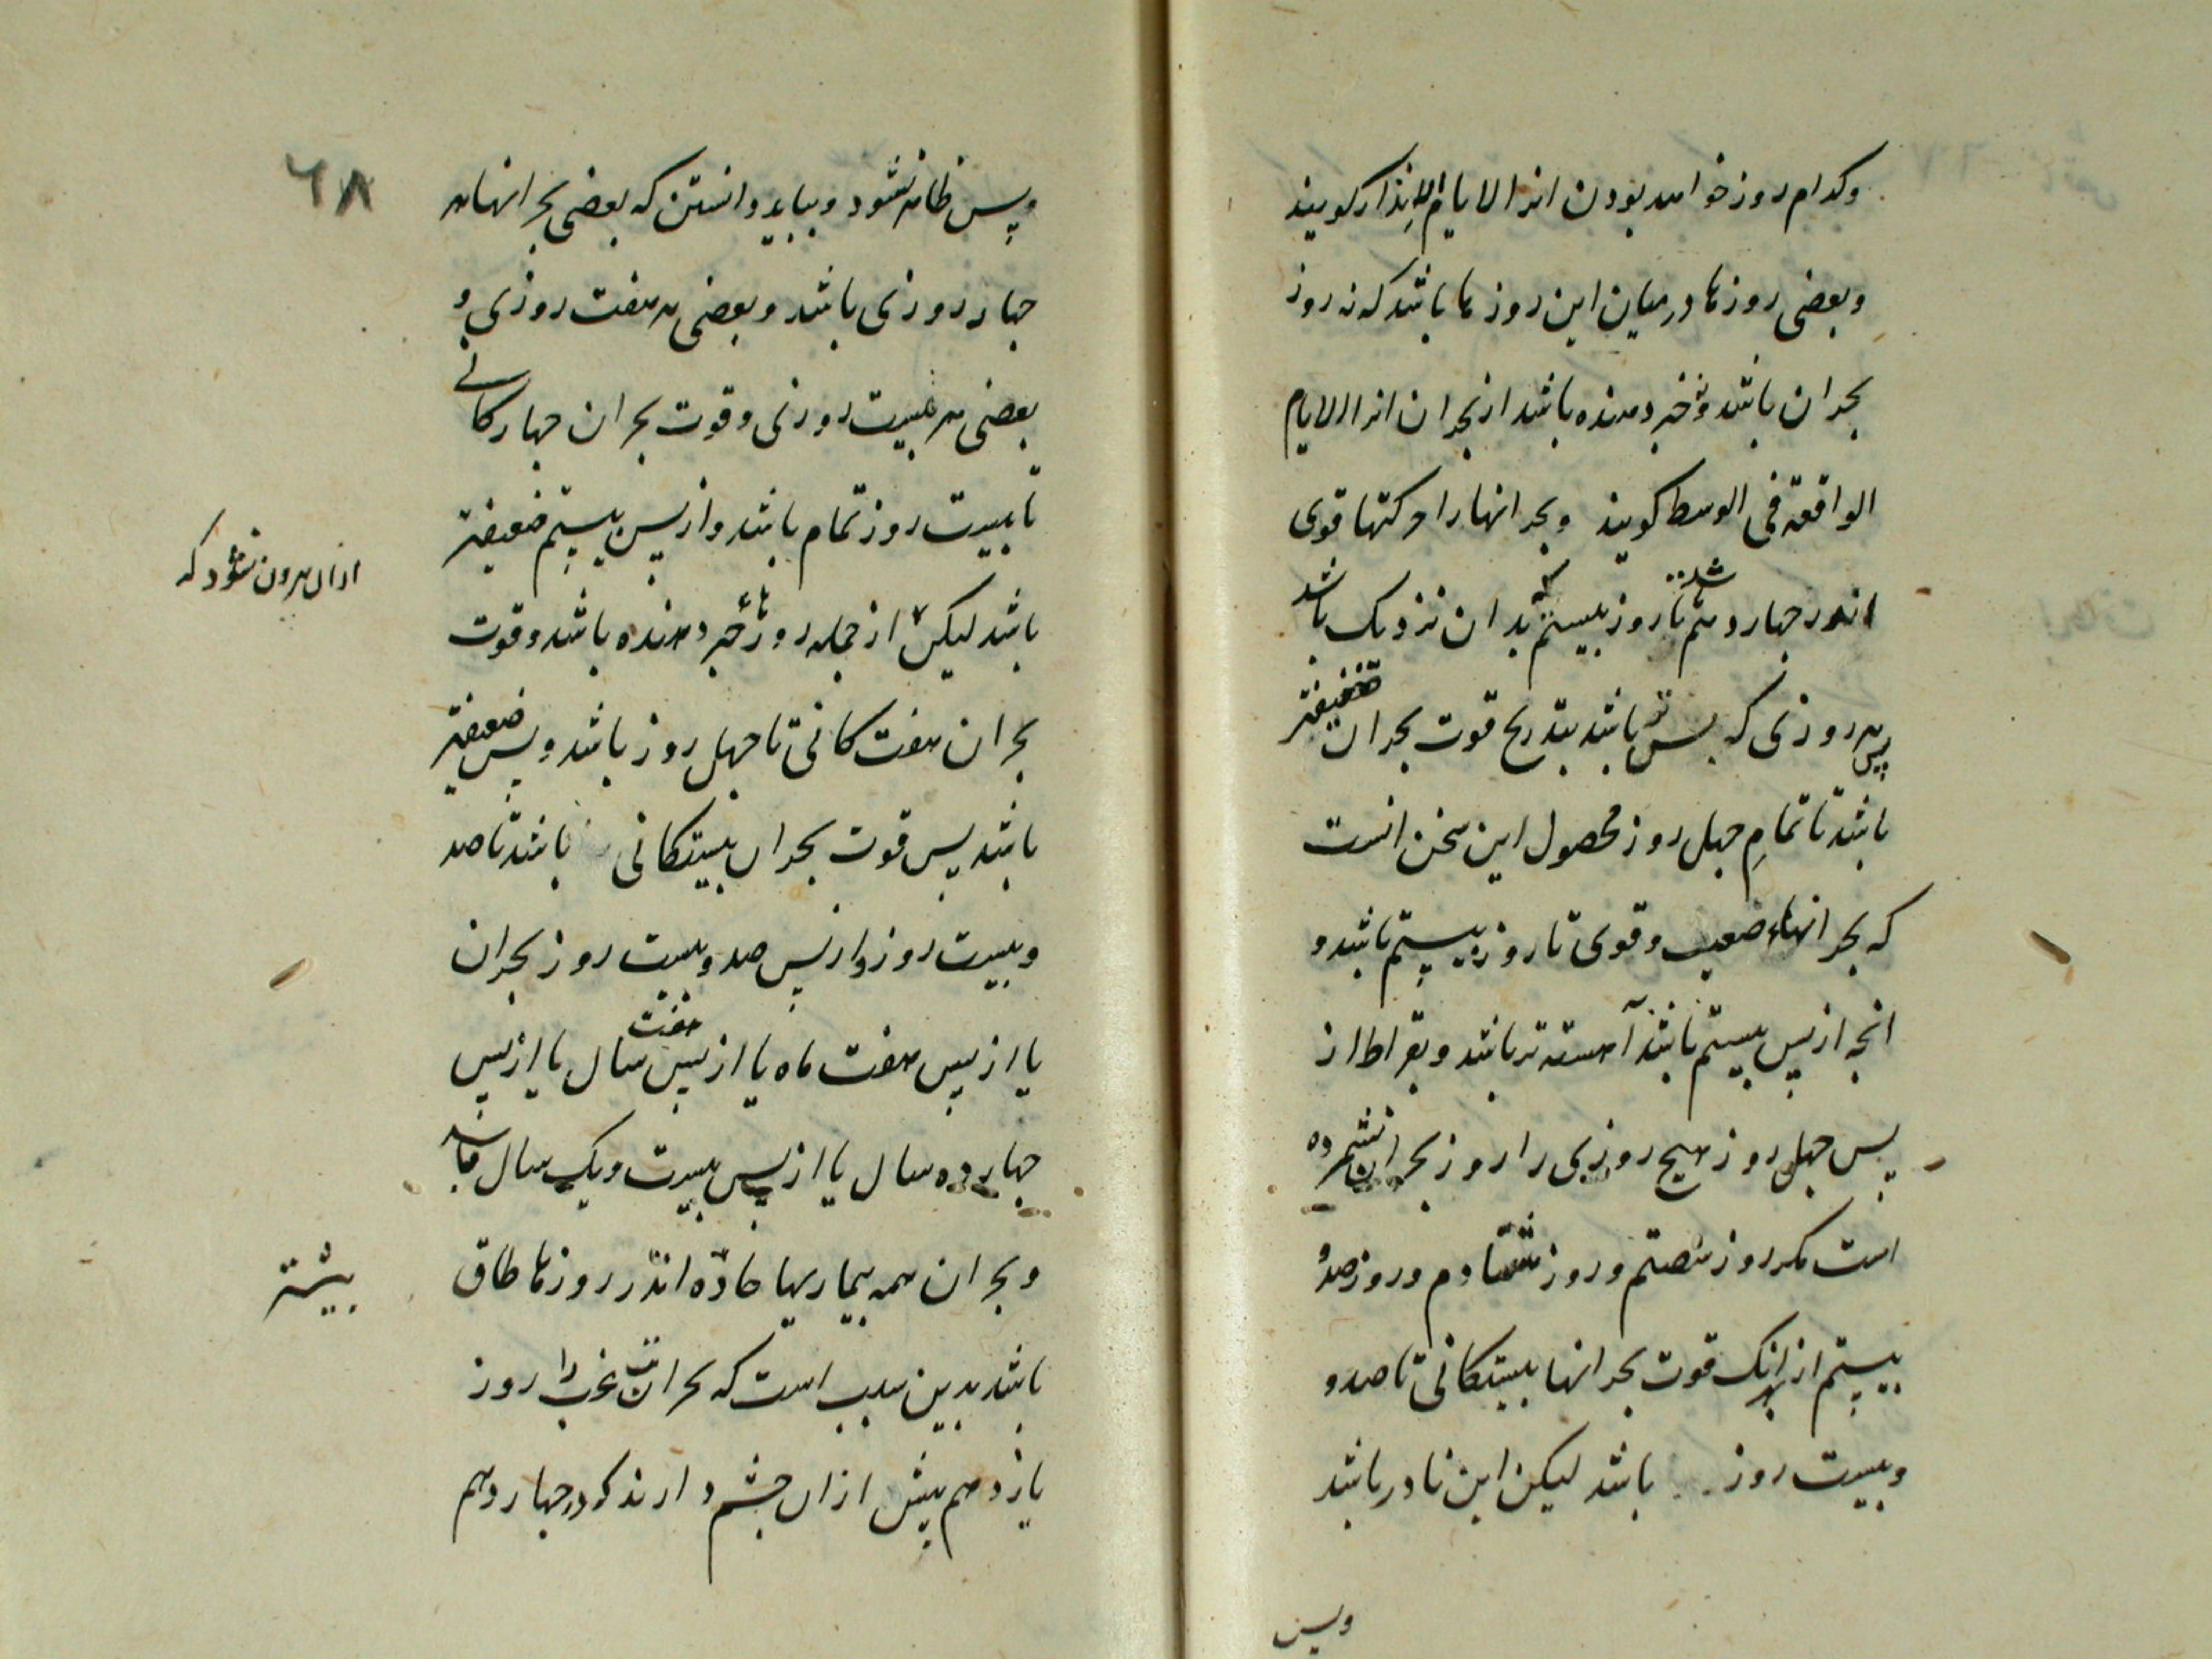 وکدام روز خواهد بودن انرا الایام الإنذار کویند
وبعضی روزها درمیان این روزها باشد که نه روز
بحران باشد و نه خبر دهنده باشد از بحران انرا الایام
الواقعة فی الوسط کویند وبحرانها را حرکتها قوی
اندر چهاردهم تا روز بیستم بدان نزدیک باشد
پس هر روزی که پس تر باشد بتدریج قوت بحران ضعیفتر
باشد تا تمامِ چهل روز محصول این سخن انست
که بحرانهاء صعب و قوی تا روز بیستم باشد و
انچه از پس بیستم باشد آهسته تر باشد و بقراط از
پس چهل روز هیچ روزی را روز بحران نشمرده
است مکر روز شصتم و روز هشتادم و روز صدو
بیستم از بهر انک قوت بحرانها بیستکانی تا صدو
وبیست روز باشد لیکن این نادر باشد
وپس
٦٨
وپس ظاهر نشود و بباید دانستن که بعضی بحرانها هر
چهار روزی باشد و بعضی هر هفت روزی و
بعضی هر بیست روزی و قوت بحران چهارکانی
تا بیست روز تمام باشد و از پس بیستم ضعیفتر
باشد لیکن از جمله روزهاء خبر دهنده باشد و قوت
ازان بیرون نشود که
بحران هفت کانی تا چهل روز باشد و پس ضعیفتر
باشد پس قوت بحران بیستکانی باشد تا صد
وبیست روز و از پس صد و بیست روز بحران
یا از پس هفت ماه یا از پس هفت سال یا از پس
چهارده سال یا از پس بیست و یک سال باشد
و بحران همه بیماریها حادّه اندر روزها طاق
بیشتر
باشد بدین سبب است که بحران تب غب را روز
یازدهم بیش ازان چشم دارند که در چهاردهم